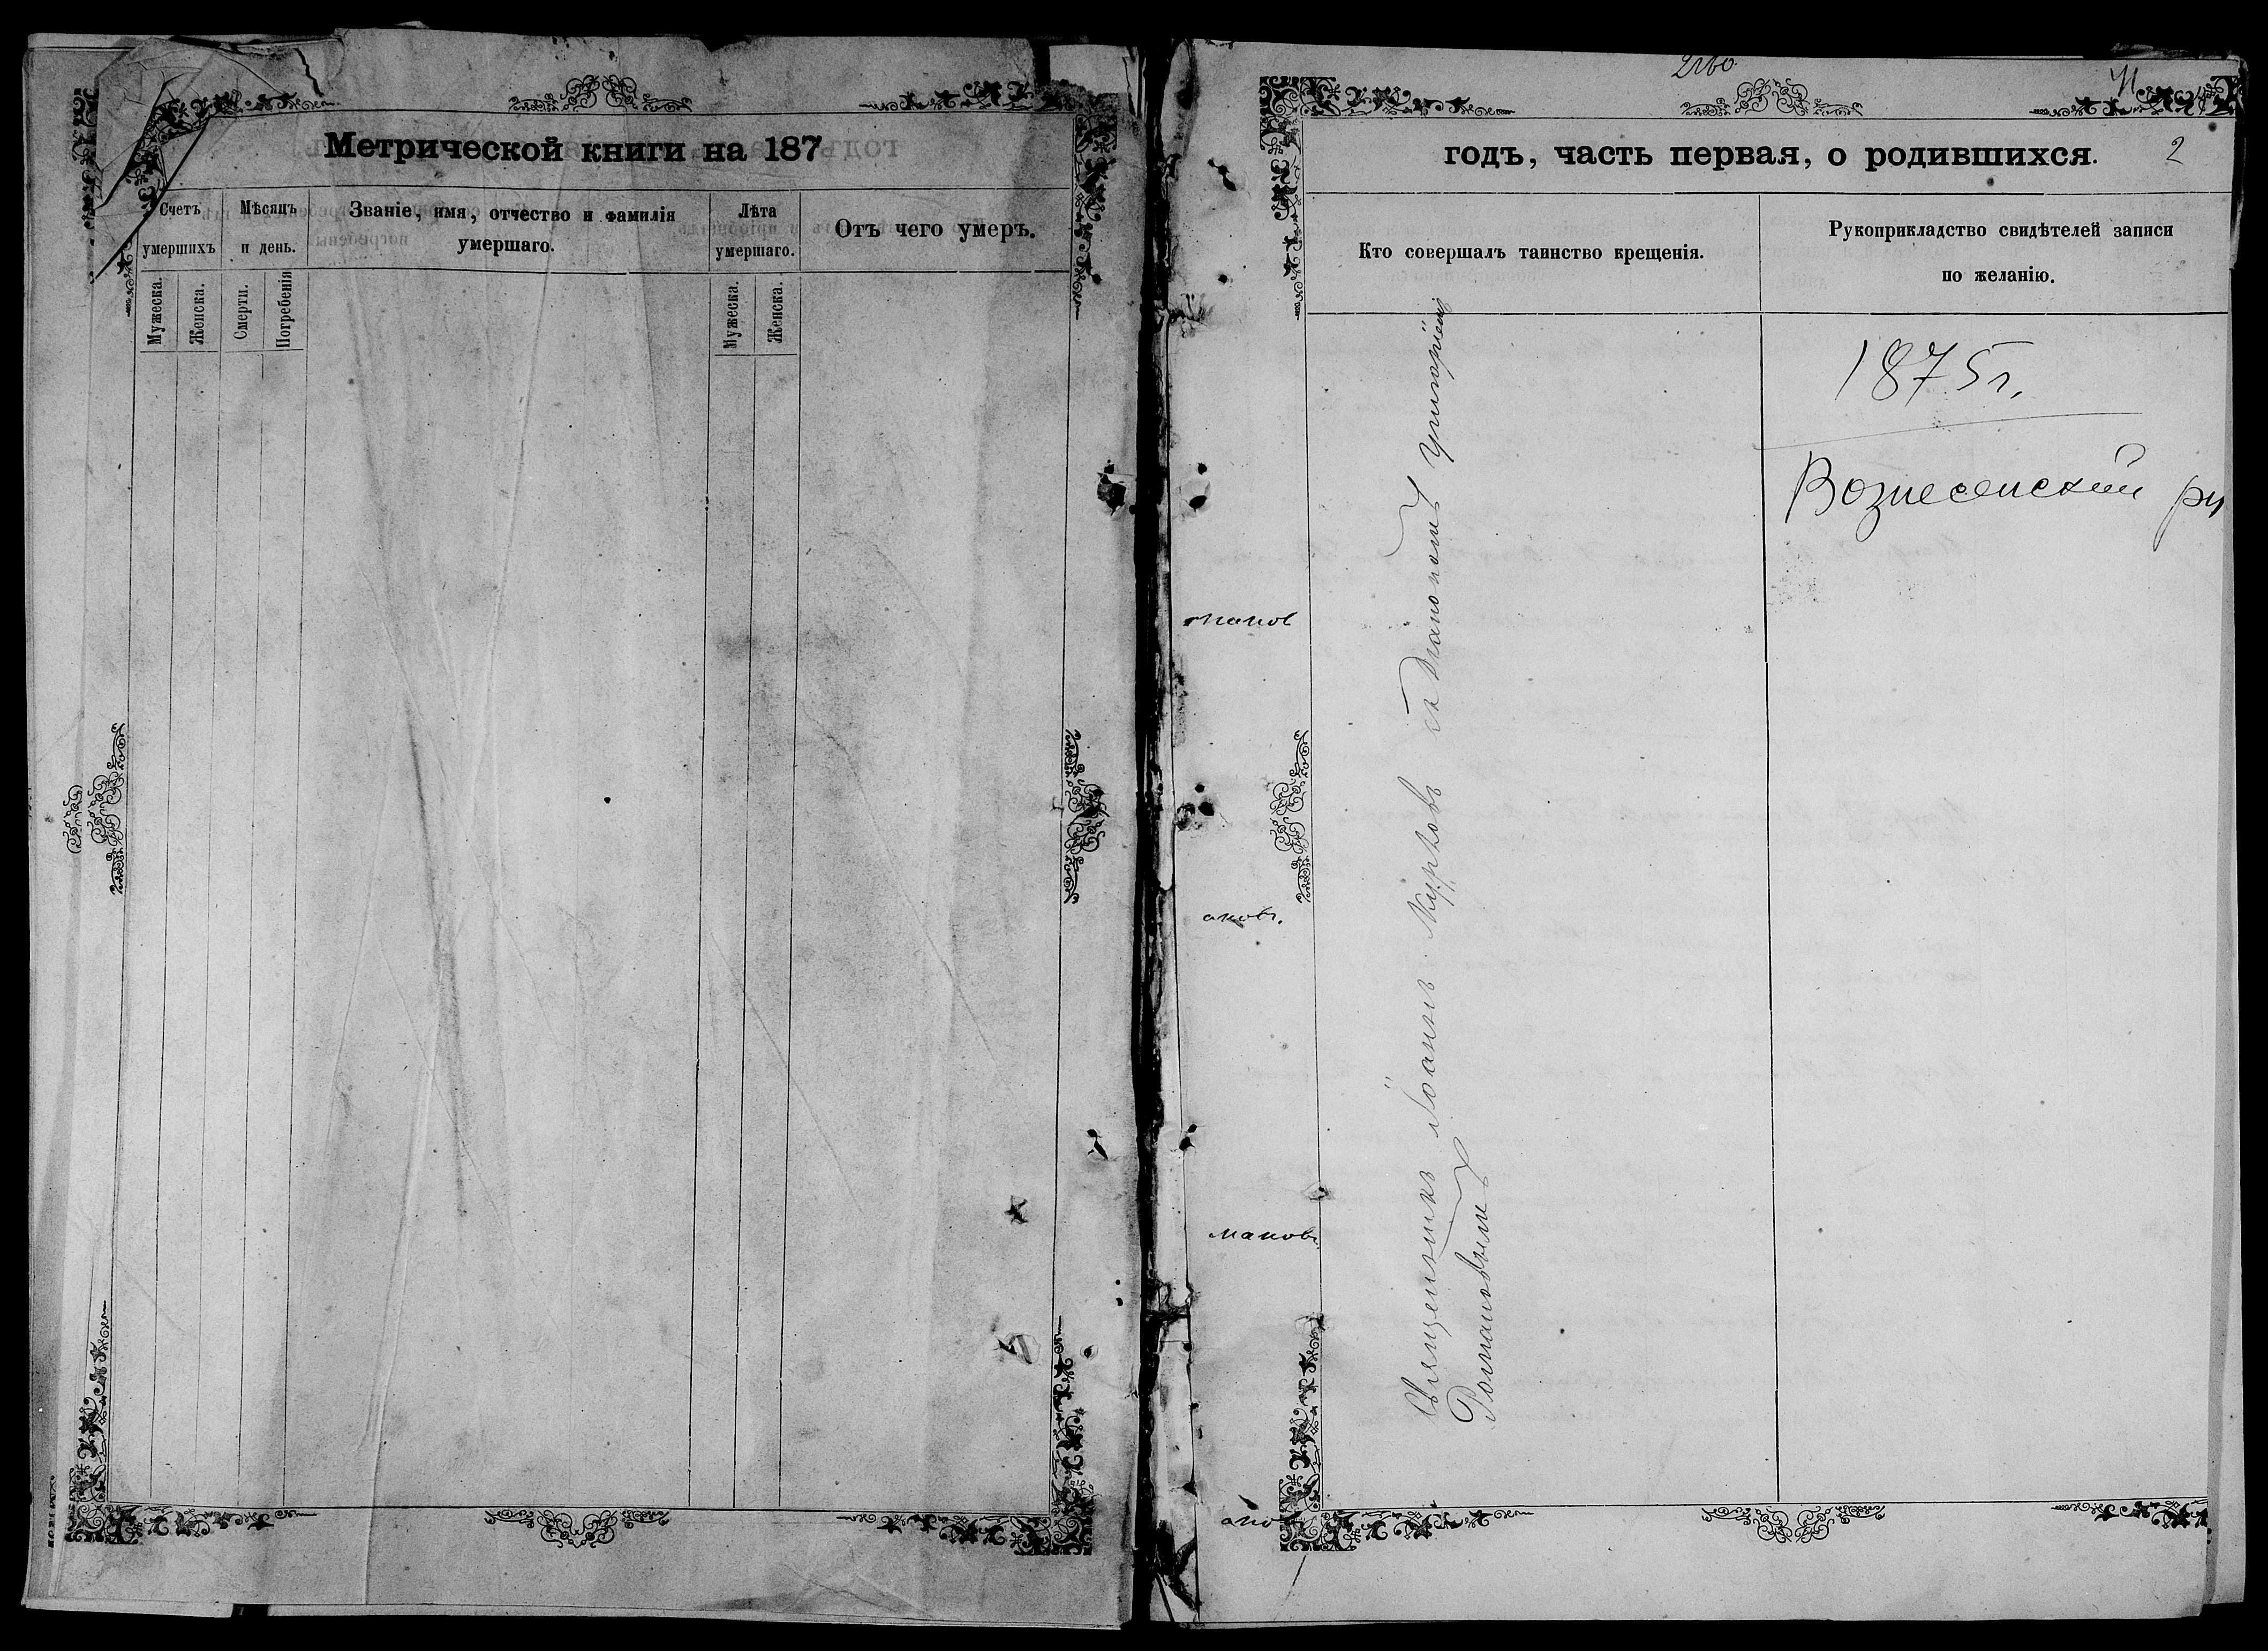 Метрической книги на 187
Счетъ умершихъ
Мѣсяцъ и день.
Званіе, имя, отчество и фамилія
умершаго.
Лѣта умершаго.
Отъ чего умеръ.
Мужеска.
Женска.
Смерти.
Погребенія
Мужеска.
Женска.
годъ, часть первая, о родившихся.
2
Кто совершалъ таинство крещенія.
Рукоприкладство свидѣтелей записи
по желанію.
1875 г.
Вознесенский
Священникъ Іоаннъ Журковъ съ Діакономъ Григоріемъ
Романовымъ
манов